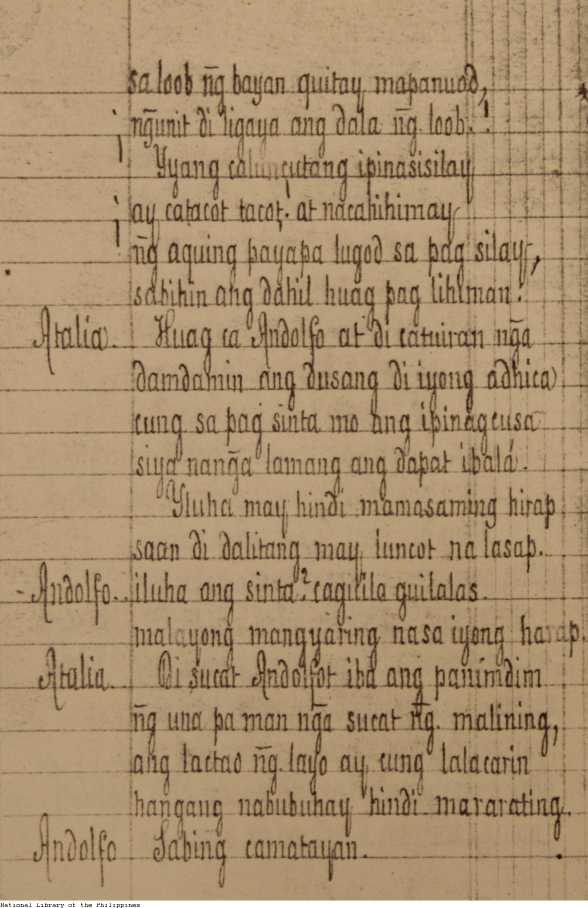 sa loob n͠g bayan quitay mapanuod,
n͠gunit di ligaya ang dala n͠g loob.!
Yyang caluncutang ipinasisilay
ay catacot tacot. at nacahihimay
n͠g aquing payapa lugod sa pag silay,
sabihin ang dahil huag pag lihiman.
Atalia. Huag ca Andolfo at di catuiran n͠ga
damdamin ang dusang di iyong adhica
cung sa pag sinta mo ang ipinagcusa
siya nan͠ga lamang ang dapat ibala.
Yluha may hindi mamasaming hirap
saan di dalitang may luncot na lasap.
Andolfo. iluha ang sinta? cagilila guilalas.
malayong mangyaring nasa iyong harap.
Atalia. Di sucat Andolfot iba ang panimdim
n͠g una pa man n͠ga sucat n͠g. malining,
ang lactao n͠g. layo ay cung lalacarin
hangang nabubuhay hindi mararating.
Andolfo Sabing camatayan.
National Library of the Philippines